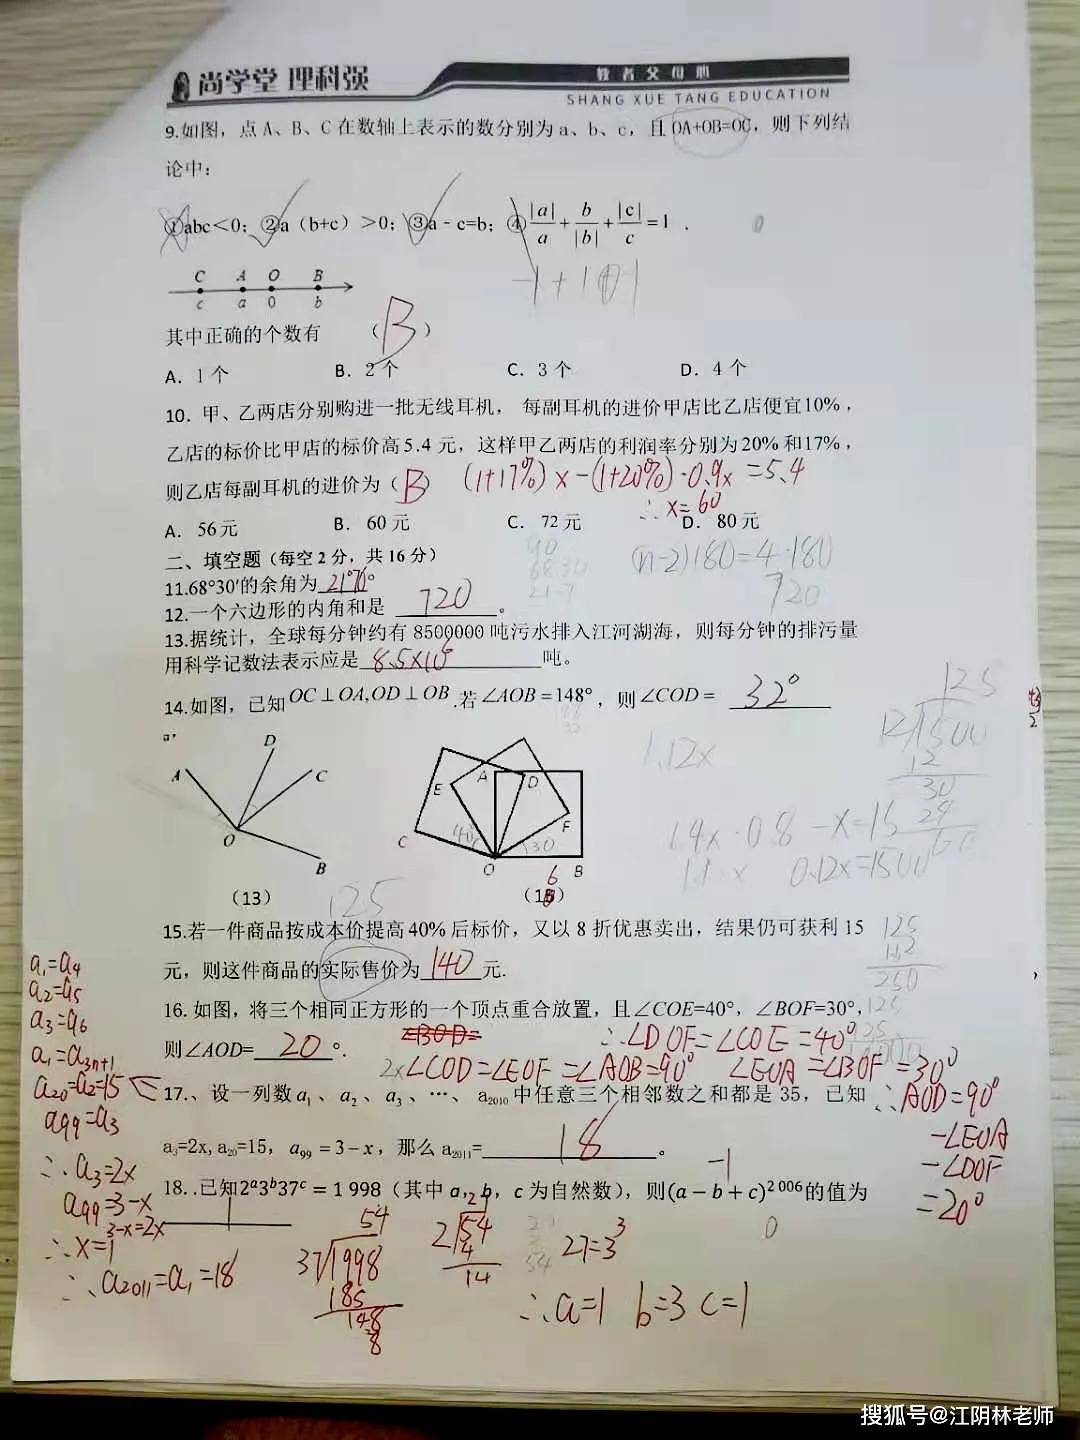 尚学堂 理科强
教者父母心
SHANG XUE TANG EDUCATION
9.如图，点A、B、C在数轴上表示的数分别为a、b、c，且OA+OB=OC，则下列结
论中：
①abc＜0；②a（b+c）＞0；③a﹣c=b；④|a|/a+b/|b|+|c|/c=1 .
0
-1+1⊕-1
C A O B
c a 0 b
其中正确的个数有 （B）
A．1个 B．2个 C．3个 D．4个
10．甲、乙两店分别购进一批无线耳机， 每副耳机的进价甲店比乙店便宜10%，
乙店的标价比甲店的标价高5.4元，这样甲乙两店的利润率分别为20%和17%，
则乙店每副耳机的进价为（B） (1+17%)x-(1+20%)·0.9x=5.4
∴x=60
A． 56元 B． 60元 C． 72元 D． 80元
二、填空题（每空2分，共16分）
(n-2)180=4·180
720
11.68°30′的余角为
12.一个六边形的内角和是 720 。
13.据统计，全球每分钟约有8500000吨污水排入江河湖海，则每分钟的排污量
用科学记数法表示应是 8.5×10⁶ 吨。
14.如图，已知OC⊥OA,OD⊥OB.若∠AOB=148°，则∠COD= 32°
125
12 1500
12
30
24
60
1.12x
1.4x·0.8-x=15
0.12x=1500
A D C O B
E A D F C O B
40 30
（13）
125
15.若一件商品按成本价提高40%后标价，又以8折优惠卖出，结果仍可获利15
元，则这件商品的实际售价为140元.
125
250
16.如图，将三个相同正方形的一个顶点重合放置，且∠COE=40°，∠BOF=30°，
则∠AOD= 20 °.
∴∠DOF=∠COE=40°
∠COD=∠EOF=∠AOB=90° ∠EOA=∠BOF=30°
∴AOD=90°
-∠EOA
-∠DOF
=20°
17.、设一列数a₁、a₂、a₃、…、a₂₀₁₀中任意三个相邻数之和都是35，已知
a₃=2x, a₂₀=15，a₉₉=3-x，那么a₂₀₁₁= 18 。
a₁=a₄
a₂=a₅
a₃=a₆
a₁=a₃ₙ₊₁
a₂₀=a₂=15
a₉₉=a₃
∴a₃=2x
a₉₉=3-x
3-x=2x
∴x=1
∴a₂₀₁₁=a₁=18
18. .已知2ᵃ3ᵇ37ᶜ=1 998（其中a，b，c为自然数），则(a-b+c)²⁰⁰⁶的值为
-1
0
54
37 1998
185
148
2 54
4
14
27=3³
∴a=1 b=3 c=1
搜狐号@江阴林老师